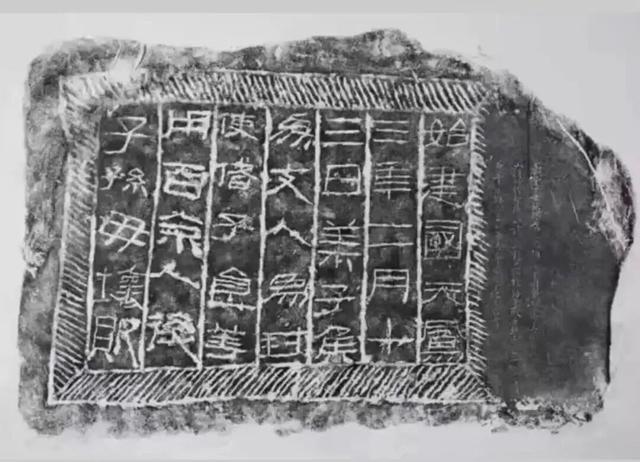 始建國天鳳
三年二月十
三日萊子矦
為支人為封
使偖子食等
用百余人後
子孫毋壞敗